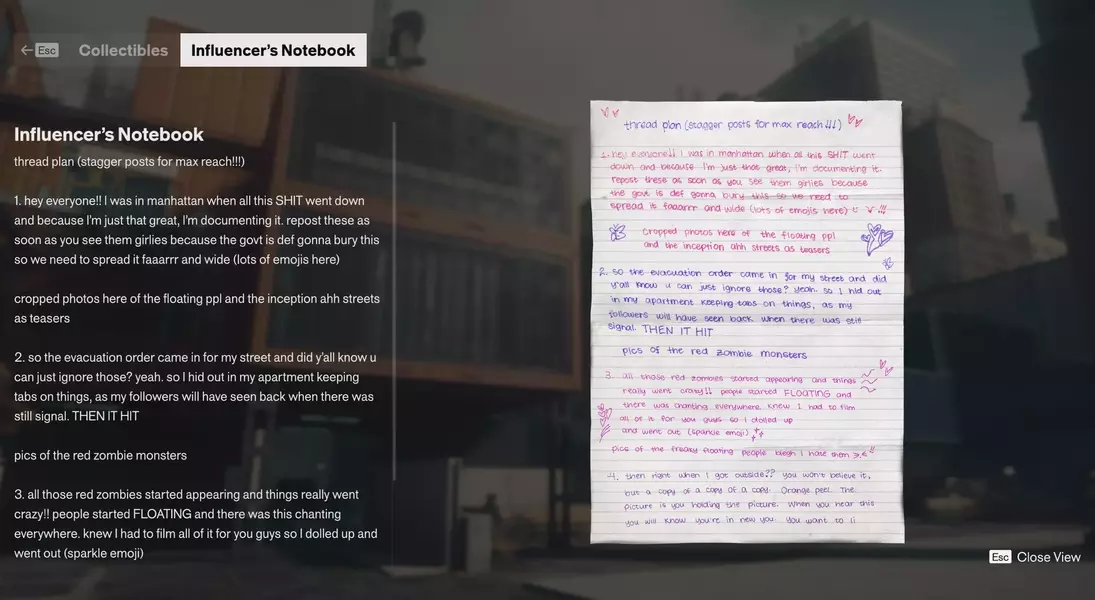 Esc
Collectibles
Influencer's Notebook
Influencer's Notebook
thread plan (stagger posts for max reach!!!)
1. hey everyone!! I was in manhattan when all this SHIT went down
and because I'm just that great, I'm documenting it. repost these as
soon as you see them girlies because the govt is def gonna bury this
so we need to spread it faaarrr and wide (lots of emojis here)
cropped photos here of the floating ppl and the inception ahh streets
as teasers
2. so the evacuation order came in for my street and did y'all know u
can just ignore those? yeah. so I hid out in my apartment keeping
tabs on things, as my followers will have seen back when there was
still signal. THEN IT HIT
pics of the red zombie monsters
3. all those red zombies started appearing and things really went
crazy!! people started FLOATING and there was this chanting
everywhere. knew I had to film all of it for you guys so I dolled up and
went out (sparkle emoji)
thread plan (stagger posts for max reach!!!)
1. hey everyone!! I was in manhattan when all this SHIT went
down and because I'm just that great, I'm documenting it.
repost these as soon as you see them girlies because
the govt is def gonna bury this so we need to
spread it faaarrr and wide (lots of emojis here)
cropped photos here of the floating ppl
and the inception ahh streets as teasers
2. so the evacuation order came in for my street and did
y'all know u can just ignore those? yeah. so I hid out
in my apartment keeping tabs on things, as my
followers will have seen back when there was still
signal. THEN IT HIT
pics of the red zombie monsters
3. all those red zombies started appearing and things
really went crazy!! people started FLOATING and
there was chanting everywhere. knew I had to film
all of it for you guys so I dolled up
and went out (sparkle emoji)
pics of the freaky floating people blegh I hate them
4. then right when I got outside?? you won't believe it,
but a copy of a copy of a copy. Orange peel. The
picture is you holding the picture. When you hear this
you will know you're in new you. You want to li
Esc
Close View